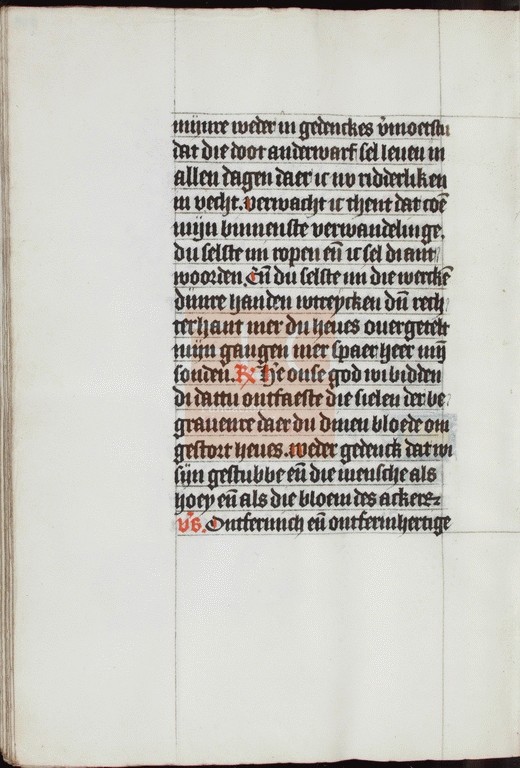 mijnre weder in gedenckes v̄moetstu
dat die doot anderwarf sel leuen in
allen dagen daer ic nv ridderliken
in vecht. verwacht ic thent dat coē
mijn binnenste verwandelinge.
du selste mi ropen eñ ic sel di ant
woorden. Eñ du selste mi die werckē
dijnre handen wtreycken dū rech
terhant mer du heues ouergetelt
mijn gangen mer spaer heer mij
sonden. R̷ He onse god wi bidden
di dattu ontfaeste die sielen der be
grauenre daer du dinen bloede om
gestort heues. weder gedenck dat wi
sijn gestubbe eñ die mensche als
hoey eñ als die bloem des ackers.
v̄s. Ontfermich eñ ontfermhertige